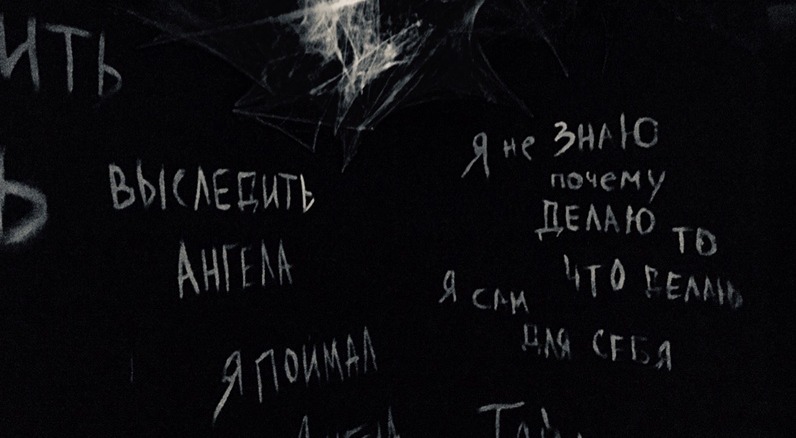 ИТЬ
Ь
ВЫСЛЕДИТЬ
АНГЕЛА
Я ПОЙМАЛ
АНГЕЛА
Я не ЗНАЮ
почему
ДЕЛАЮ ТО
ЧТО ДЕЛАЮ
Я САМ
ДЛЯ СЕБЯ